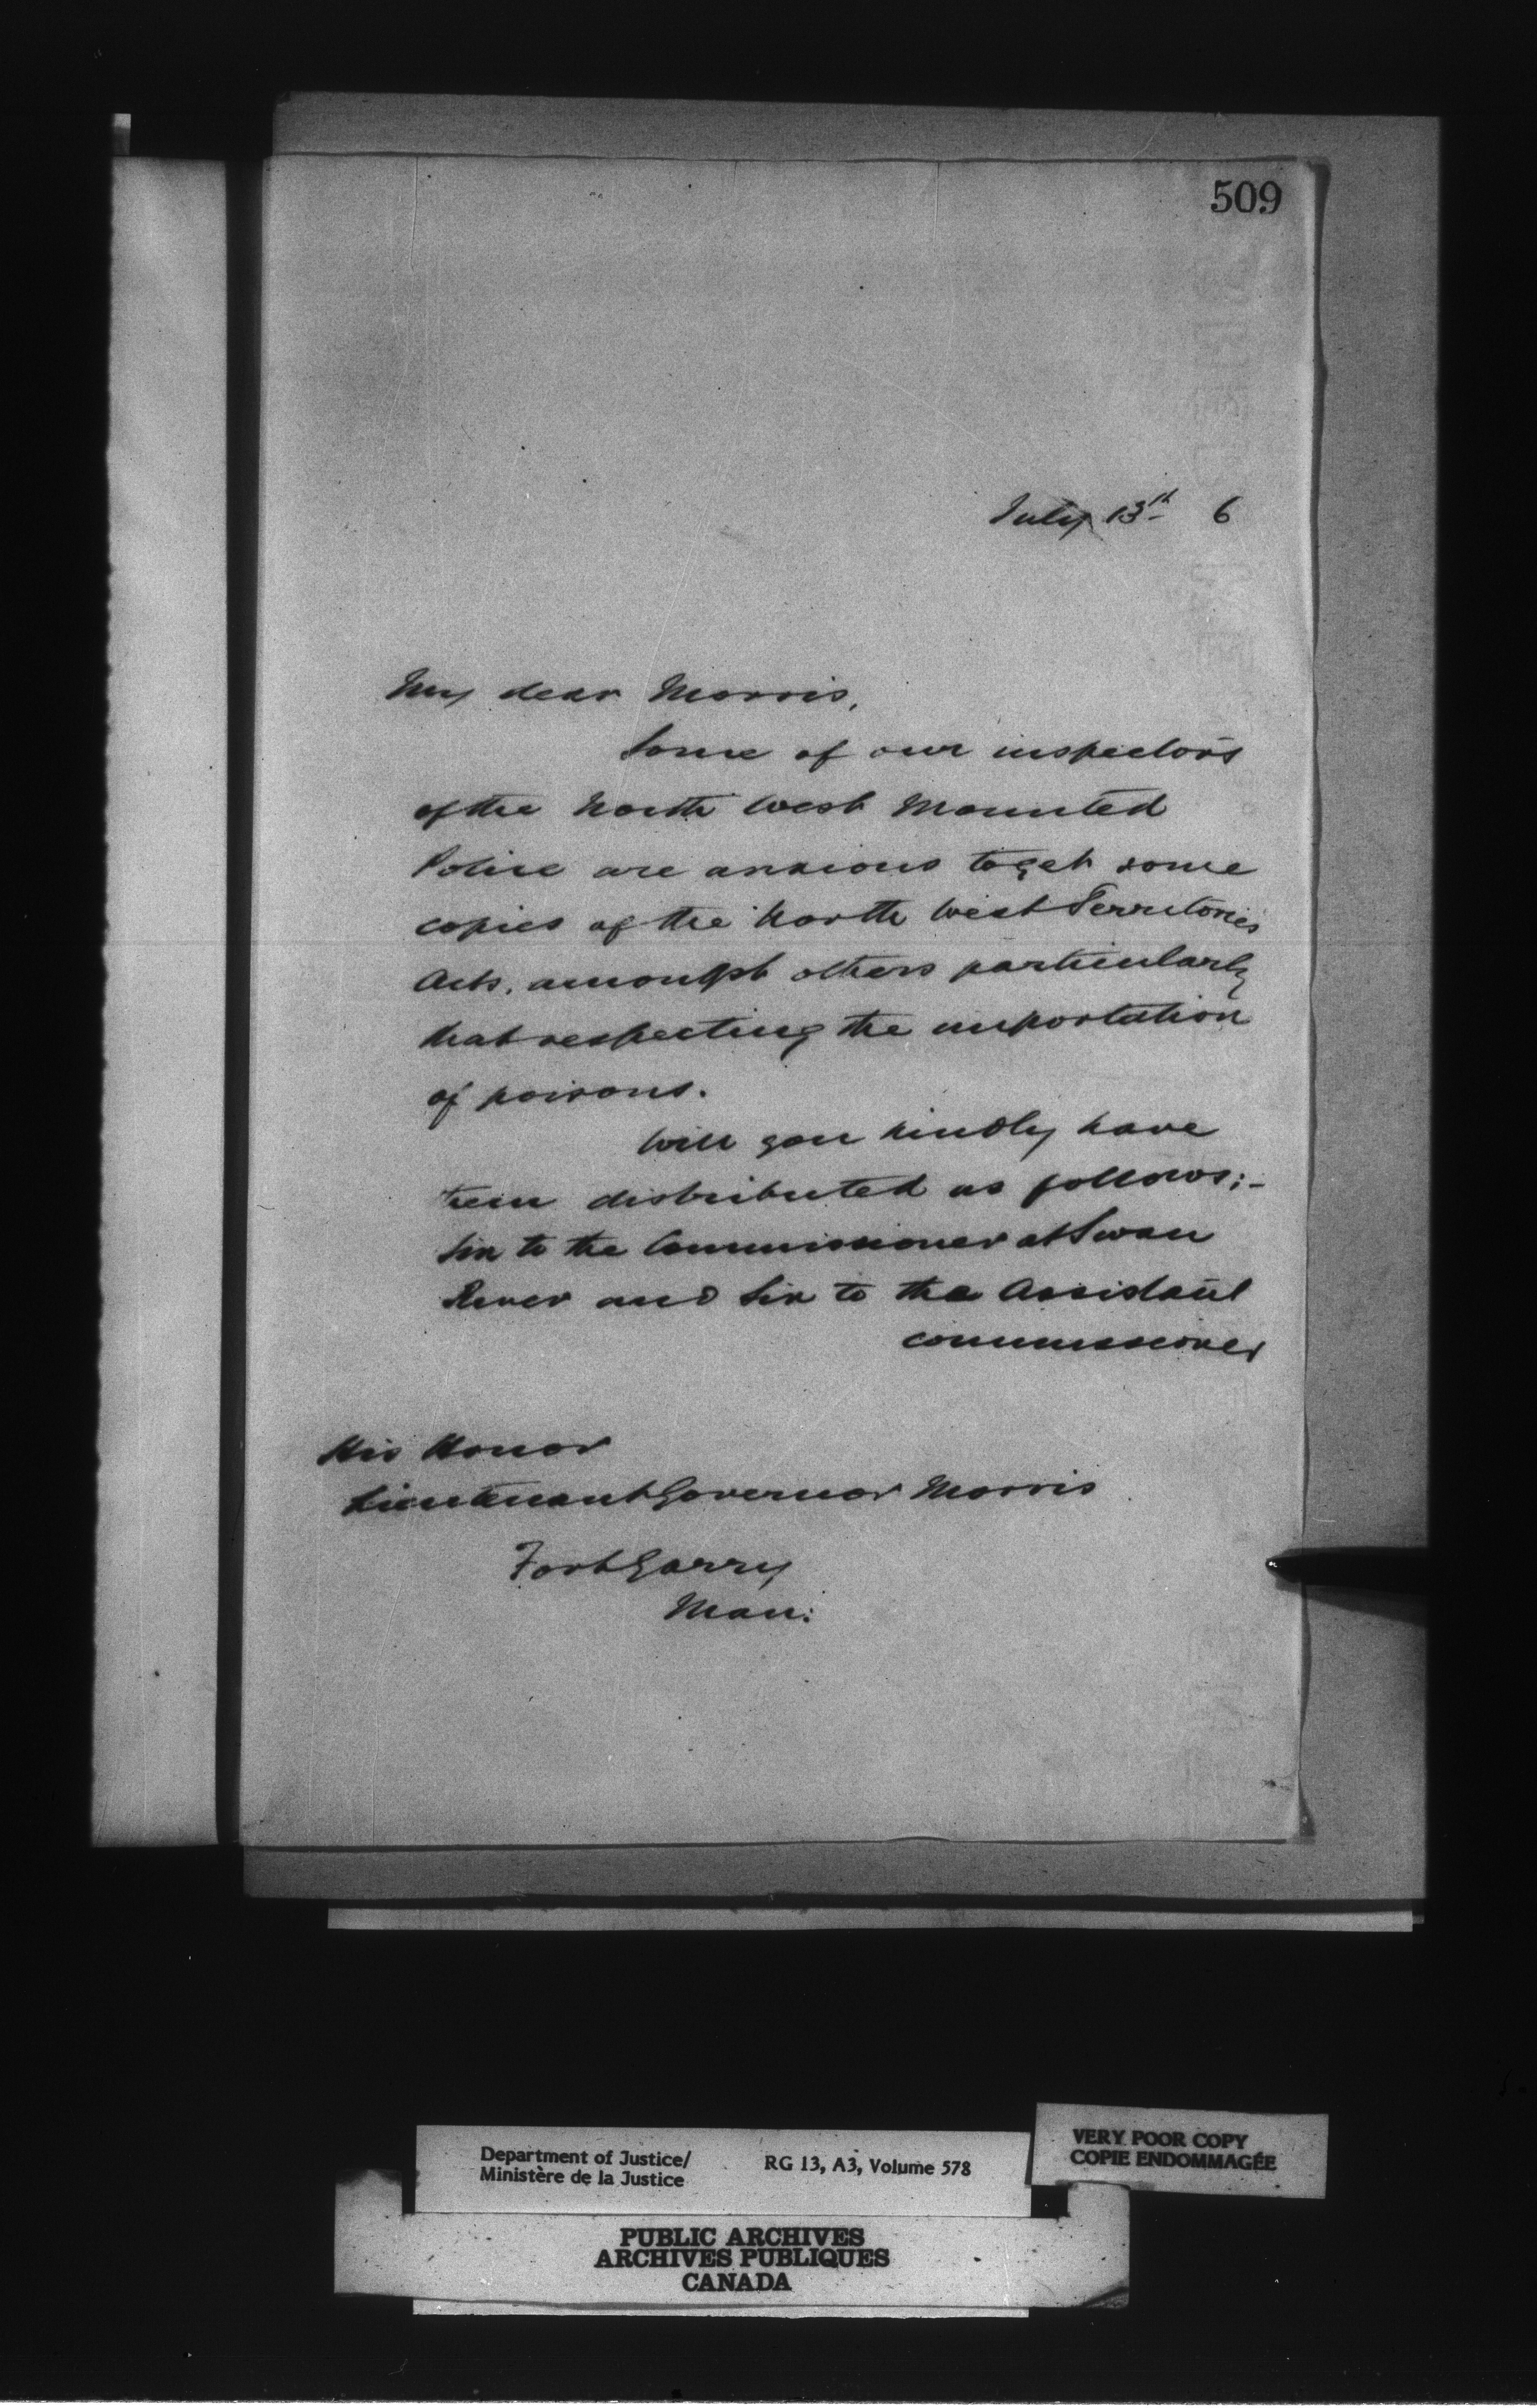 509
July 13th 6
My dear Morris,
Some of our inspectors
of the North West Mounted
Police are anxious to get some
copies of the North West Territories
Acts, amongst others particularly
that respecting the importation
of poisons.
Will you kindly have
them distributed as follows;-
Six to the Commissioner at Swan
River and Six to the Assistant
commissioner
His Honor
Lieutenant Governor Morris
Fort Garry
Man:
Department of Justice/
Ministère de la Justice
RG 13, A3, Volume 578
VERY POOR COPY
COPIE ENDOMMAGÉE
PUBLIC ARCHIVES
ARCHIVES PUBLIQUES
CANADA